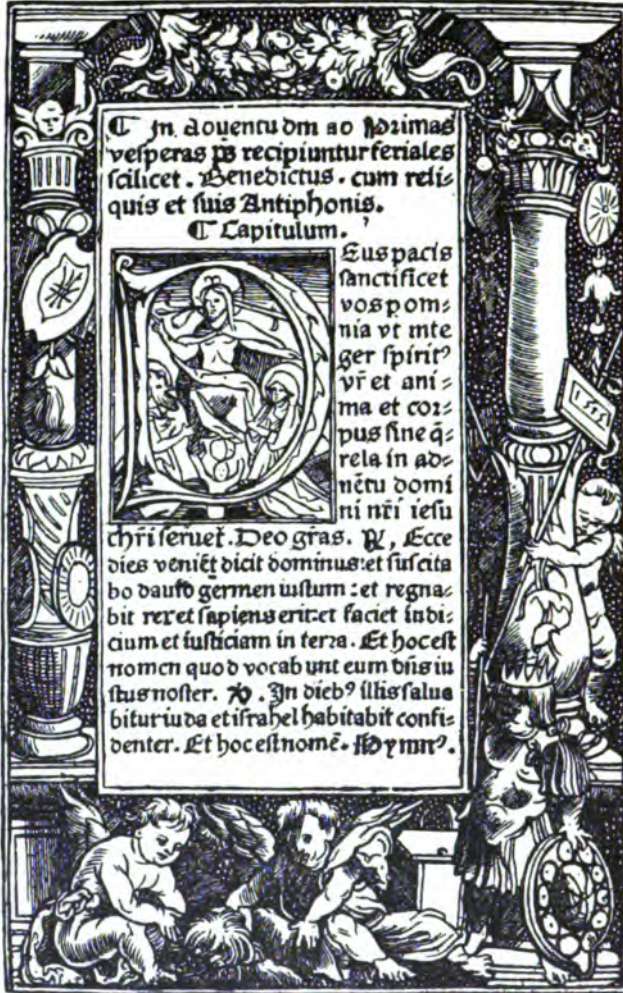 ¶ In aduentu dm ad Primas
vesperas ps recipiuntur feriales
scilicet. Benedictus. cum reli-
quis et suis Antiphonis.
¶ Capitulum.
DEus pacis
sanctificet
vos p om-
nia vt inte
ger spiritꝰ
vr̃ et ani-
ma et cor-
pus sine q̃-
rela in ad-
uẽtu domi
ni nr̃i iesu
chr̃i seruet. Deo gr̃as. ℟, Ecce
dies veniẽt dicit dominus: et suscita
bo dauid germen iustum: et regna-
bit rex et sapiens erit: et faciet iudi-
cium et iusticiam in terra. Et hoc est
nomen quod vocabunt eum dñs iu
stus noster. ℣. In diebꝰ illis salua
bitur iuda et israhel habitabit confi-
denter. Et hoc est nomẽ. Hymnꝰ.